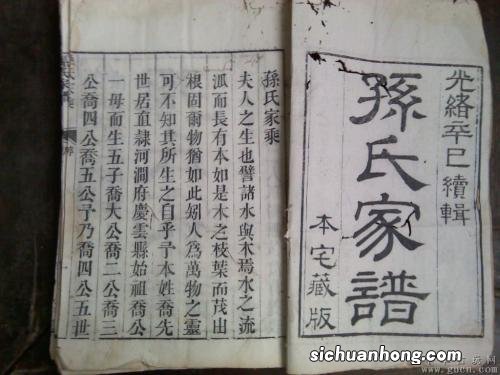 光緒辛巳續輯
孫氏家譜
本宅藏版
孫氏家乘
夫人之生也譬諸水與木焉水之流
泒而長有本如是木之枝葉而茂出
根固爾物猶如此矧人為萬物之靈
可不知其所生之自乎予本姓喬先
世居直隸河澗府慶雲縣始祖喬公
一母而生五子喬大公喬二公喬三
公喬四公喬五公予乃喬四公五世
sichuanhong.com
www.gucn.com